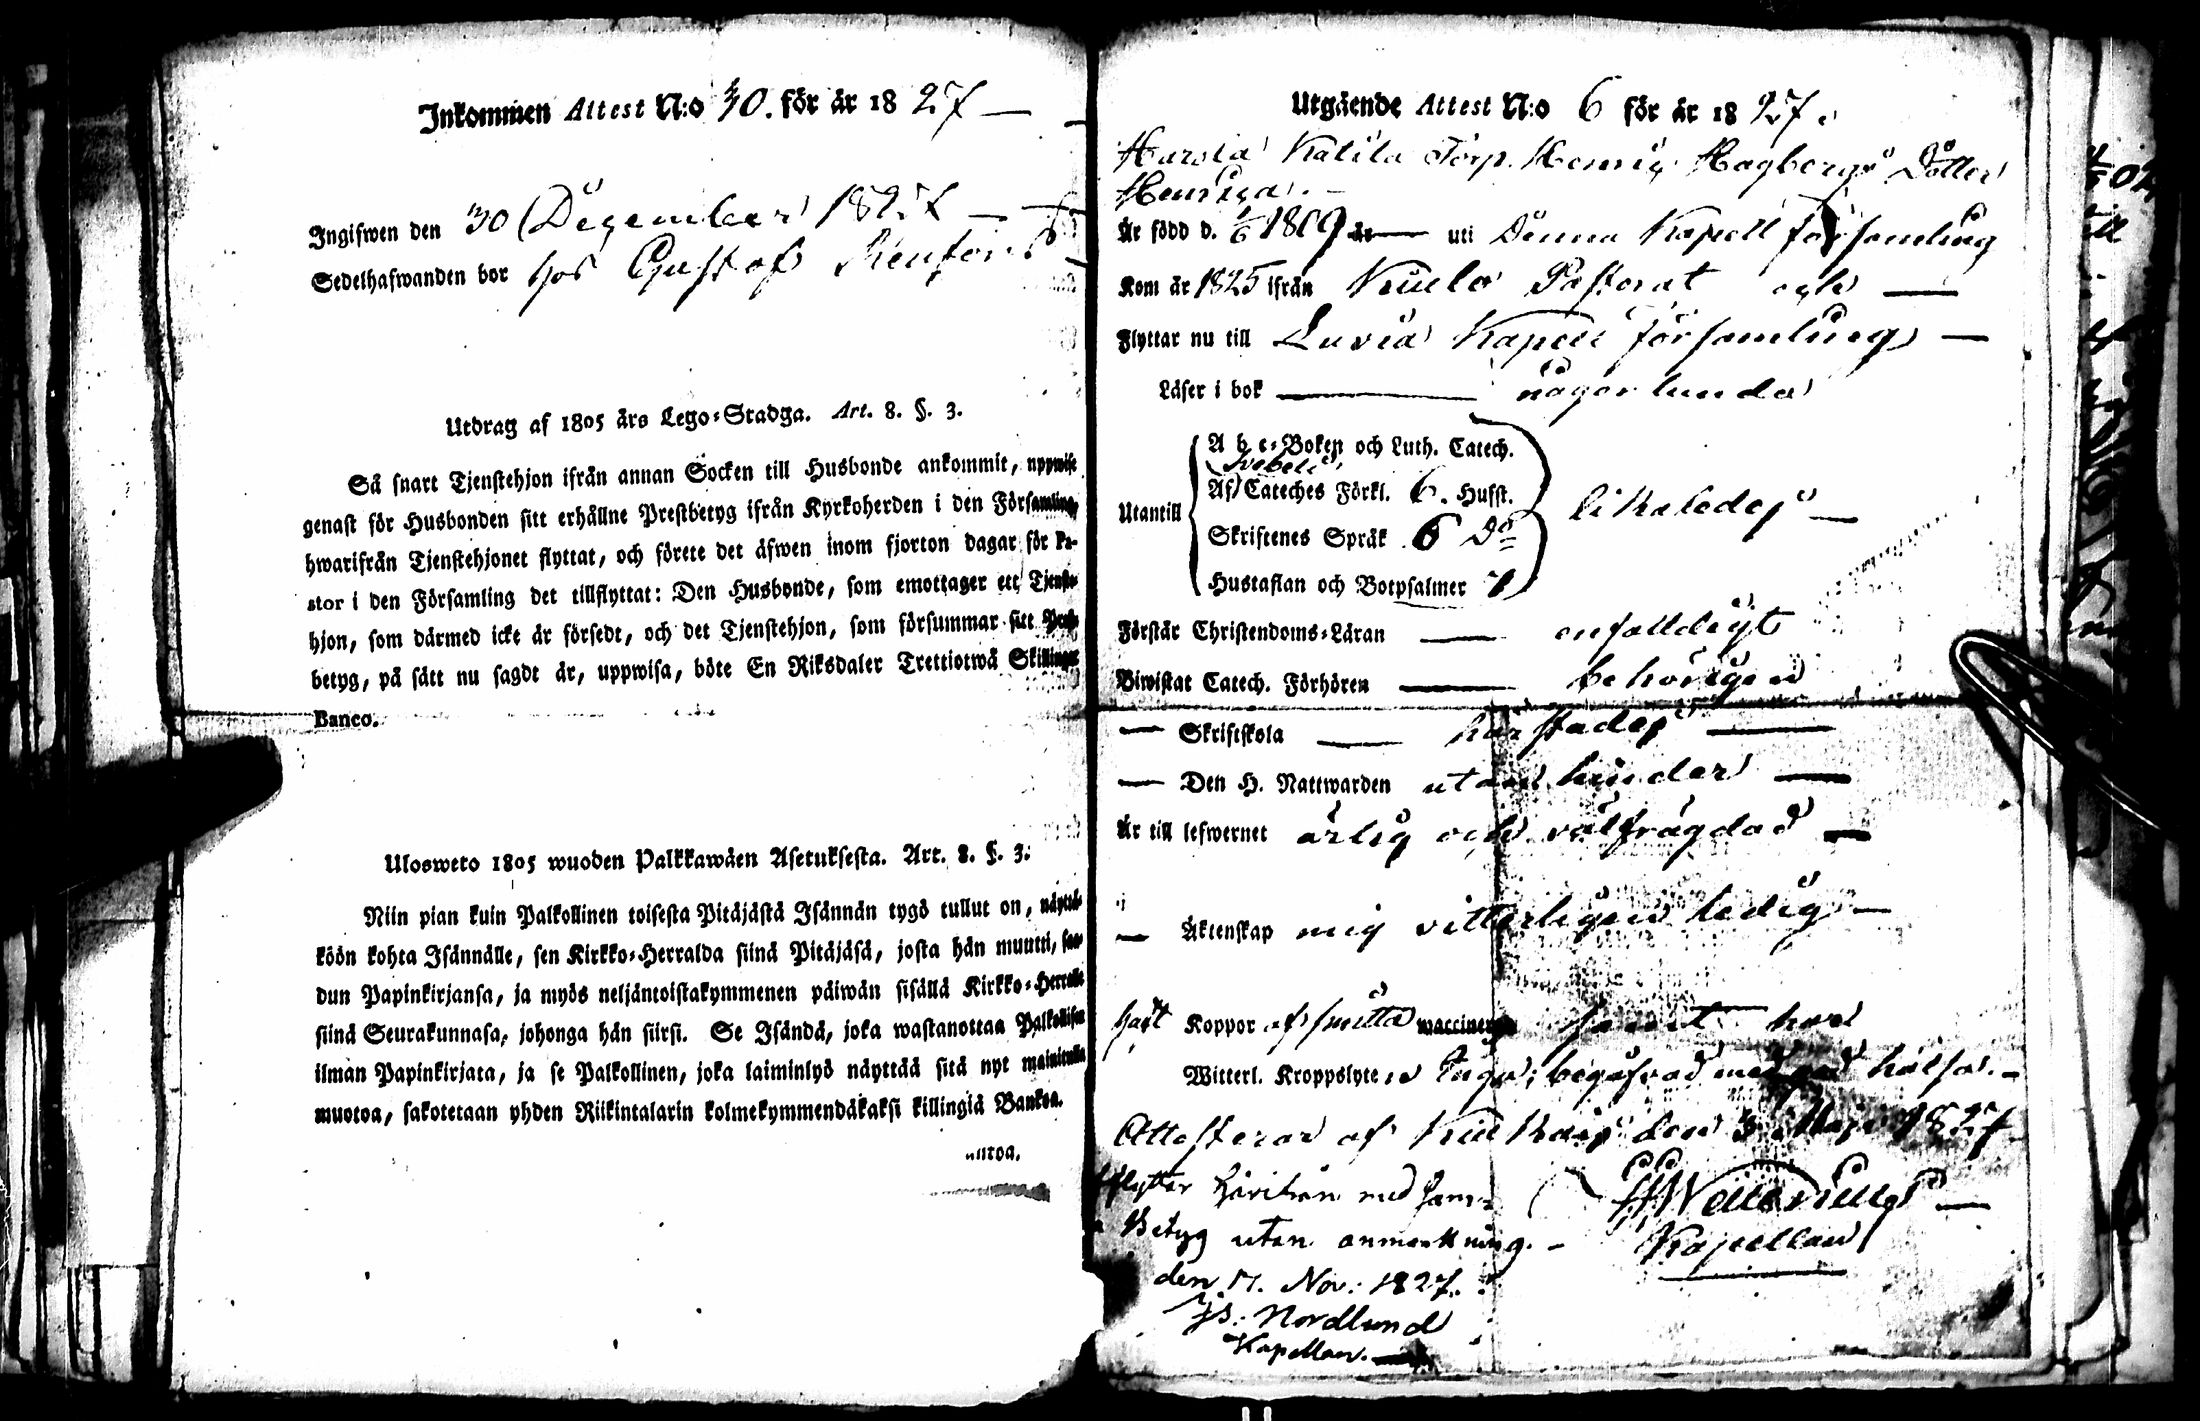 Inkommen Attest N:o 30. för år 1827 —
Ingifwen den 30 December 1827 —
Sedelhafwanden bor hos Gustaf
Utdrag af 1805 års Lego-Stadga. Art. 8. §. 3.
Så snart Tjenstehjon ifrån annan Socken till Husbonde ankommit, uppwise
genast för Husbonden sitt erhållne Prestbetyg ifrån Kyrkoherden i den Församling,
hwarifrån Tjenstehjonet flyttat, och förete det äfwen inom fjorton dagar för Pa-
stor i den Församling det tillflyttat: Den Husbonde, som emottager ett Tjenste-
hjon, som därmed icke är försedt, och det Tjenstehjon, som försummar sitt Prest-
betyg, på sätt nu sagdt är, uppwisa, böte En Riksdaler Trettiotwå Skillingar
Banco.
Ulosweto 1805 wuoden Palkkawäen Asetuksesta. Art. 8. §. 3.
Niin pian kuin Palkollinen toisesta Pitäjästä Isännän tygö tullut on, näyttä-
köön kohta Isännälle, sen Kirkko-Herralda siinä Pitäjäsä, josta hän muutti, saa-
dun Papinkirjansa, ja myös neljäntoistakymmenen päiwän sisällä Kirkko-Herralle
siinä Seurakunnasa, johonga hän siirsi. Se Isändä, joka wastanottaa Palkollisen
ilman Papinkirjata, ja se Palkollinen, joka laiminlyö näyttää sitä nyt mainitulla
muotoa, sakotetaan yhden Riikintalarin kolmekymmendäkaksi killingiä Bankoa.
Utgående Attest N:o 6 för år 1827.
Katila Torp. Henric Hagbergs Dotter
Henrica. —
Är född d. 1/6 1809 år — uti Denna Kapell församling
Kom år 1825 ifrån Pastorat och —
Flyttar nu till Luvia Kapell församling —
Läser i bok — någorlunda
A b c-Boken och Luth. Catech.
Svebelii
Utantill Af Cateches Förkl. 6. Hufst. likaledes —
Skriftenes Språk 6 Do
Hustaflan och Botpsalmer 7
Förstår Christendoms-Läran — enfalldigt
Biwistat Catech. Förhören — behörigen
— Skriftskola — härstädes —
— Den H. Nattwarden utan hinder —
Är till lefwernet ärlig och välfrägdad —
— Äktenskap mig vitterligen ledig —
haft Koppor af smitta waccinerad samt har
Witterl. Kroppslyten Inga; begåfvad med god hälsa. —
Attesterar af den 3 Maji 1827
flyttar härifrån med sam-
Betyg utan anmerkning. —
Kapellan
den 17. Nov: 1827.
Js: Nordlund
Kapellan. —